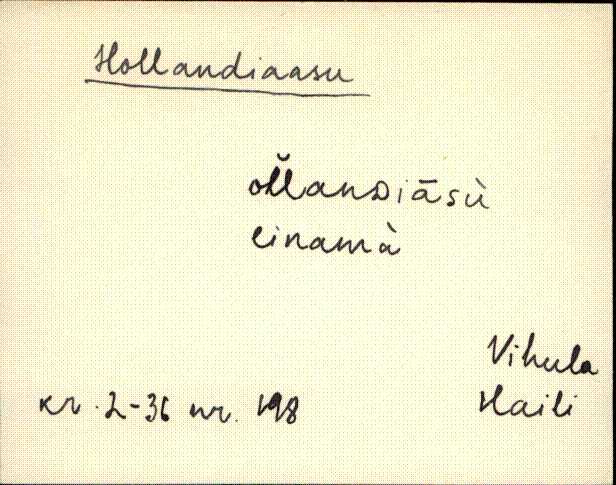 Hollandiaasu
oľľanᴅiāsù
einamà
Vihula
Haili
kr. 2-36 nr. 198